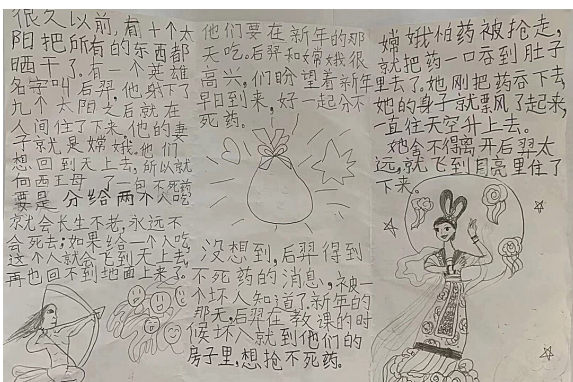 很久以前,有十个太
阳把所有的东西都
晒干了。有一个英雄
名字叫后羿,他射下了
九个太阳之后就在
人间住了下来。他的妻
子就是嫦娥。他们
想回到天上去,所以就
向西王母 了一包不死药
要是分给两个人吃
就会长生不老,永远不
会死去;如果给一个人吃
这个人就会飞到天上去,
再也回不到地面上来了。
他们要在新年的那
天吃。后羿和嫦娥很
高兴,们盼望着新年
早日到来,好一起分不
死药。
没想到,后羿得到
不死药的消息,被一
个坏人知道了。新年的
那天,后羿在教课的时
候坏人就到他们的
房子里,想抢不死药。
嫦娥怕药被抢走,
就把药一口吞到肚子
里去了。她刚把药吞下去,
她的身子就飘了起来,
一直往天空升上去。
她舍不得离开后羿太
远,就飞到月亮里住了
下来。